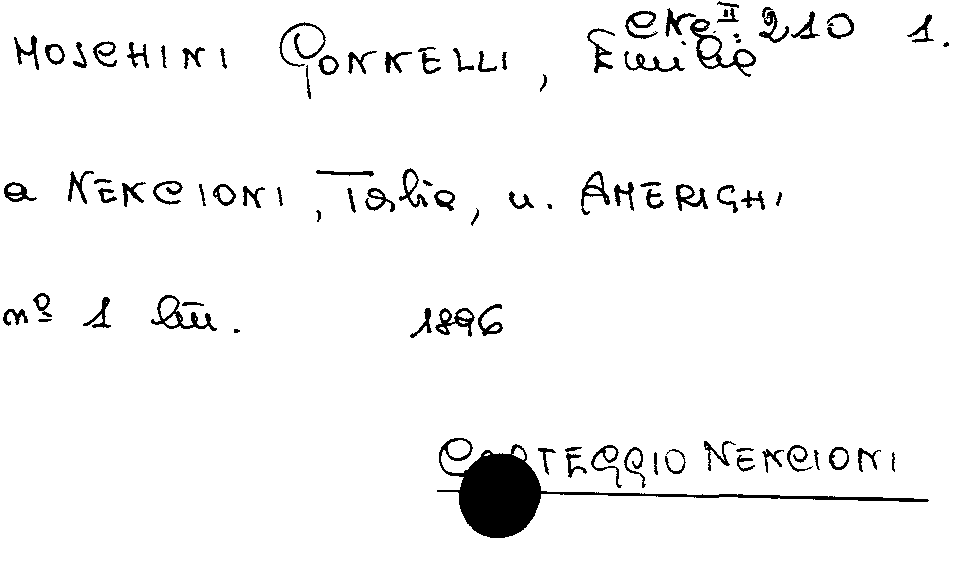 CNe II. 210 1.
MOSCHINI GONNELLI, Emilia
a NENCIONI, Talia, n. AMERIGHI
nº 1 lett. 1896
CARTEGGIO NENCIONI